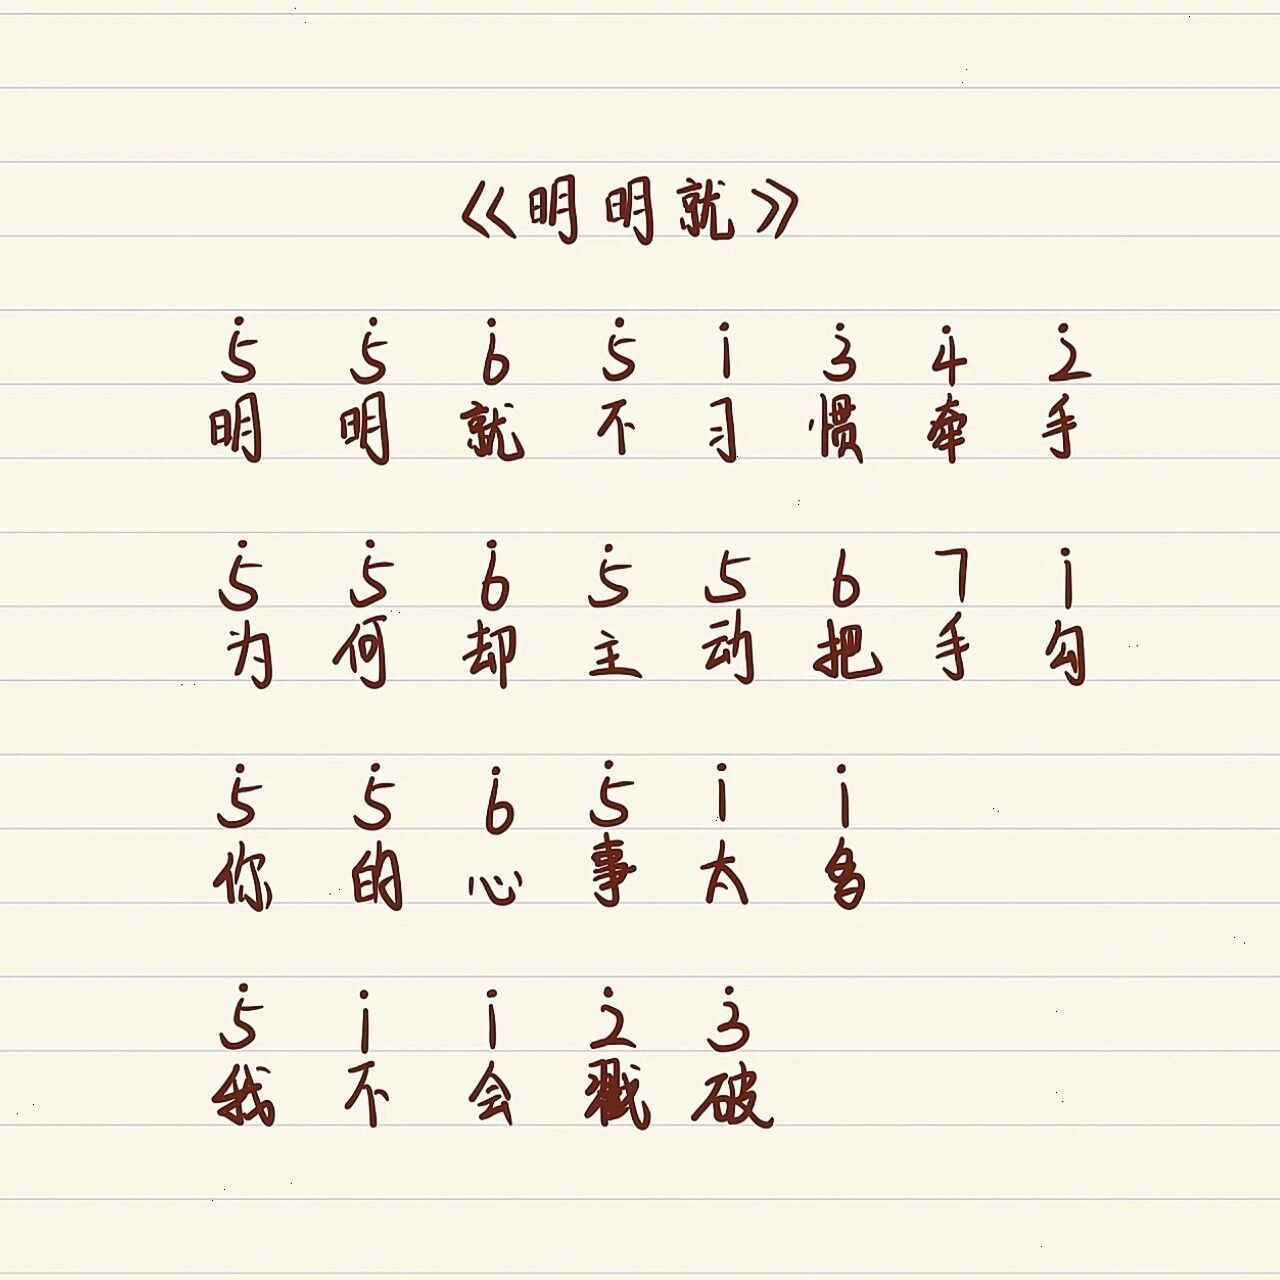 《明明就》
5̇ 5̇ 6̇ 5̇ 1̇ 3̇ 4̇ 2̇
明明就不习惯牵手
5̇ 5̇ 6̇ 5̇ 5 6 7 1̇
为何却主动把手勾
5̇ 5̇ 6̇ 5̇ 1̇ 1̇
你的心事太多
5̇ 1̇ 1̇ 2̇ 3̇
我不会戳破